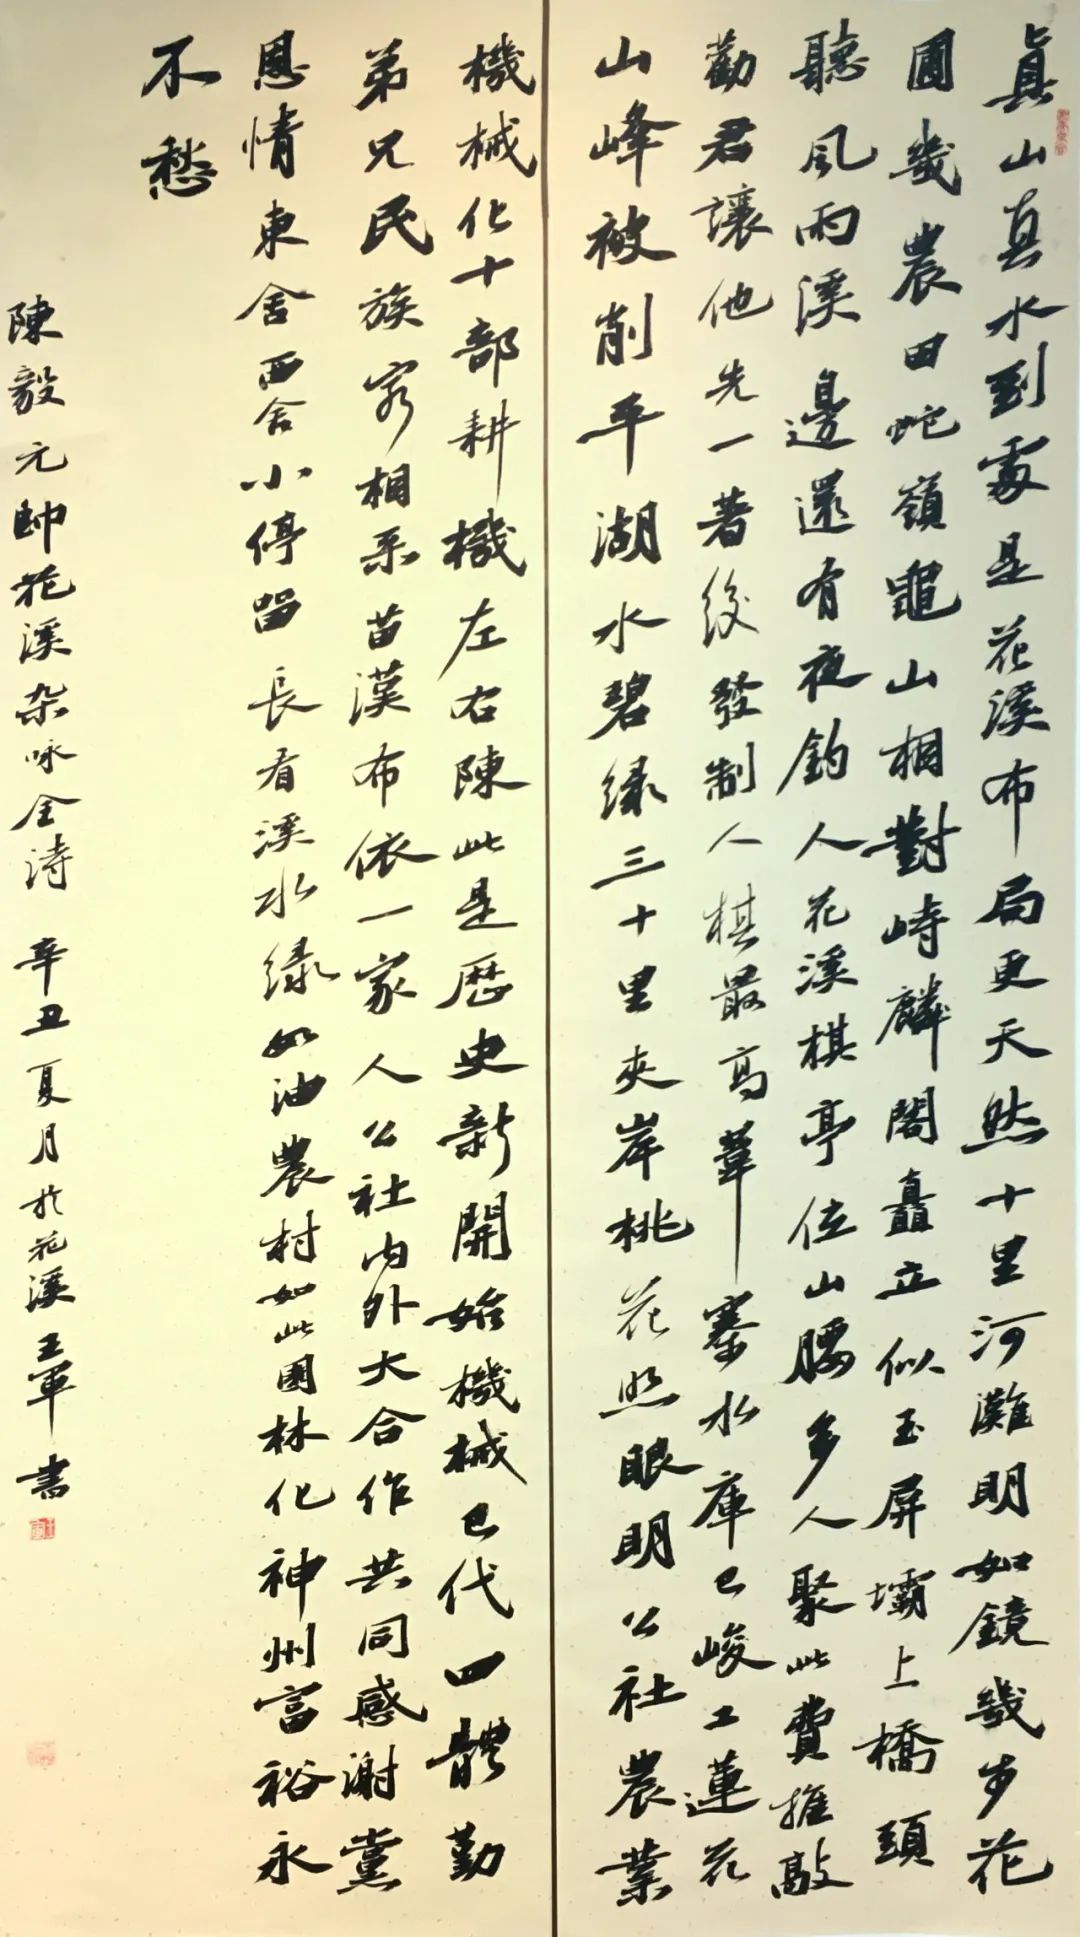 眞山真水到處是花溪布局更天然十里河灘明如鏡幾步花
圃幾農田蛇嶺龜山相對峙麟閣矗立似玉屏壩上橋頭
聽風雨溪邊還有夜釣人花溪棋亭位山腰多人聚此費推敲
勸君讓他先一著後發制人棋最高葦寨水庫已峻工蓮花
山峰被削平湖水碧绿三十里夾岸桃花照眼明公社農業
機械化十部耕機左右陳此是歷史新開始機械已代四體勤
弟兄民族家相系苗漢布依一家人公社内外大合作共同感谢黨
恩情東舍西舍小停留長看溪水绿如油農村如此園林化神州富裕永
不愁
陳毅元帥花溪杂咏全詩 辛丑夏月於花溪王軍書